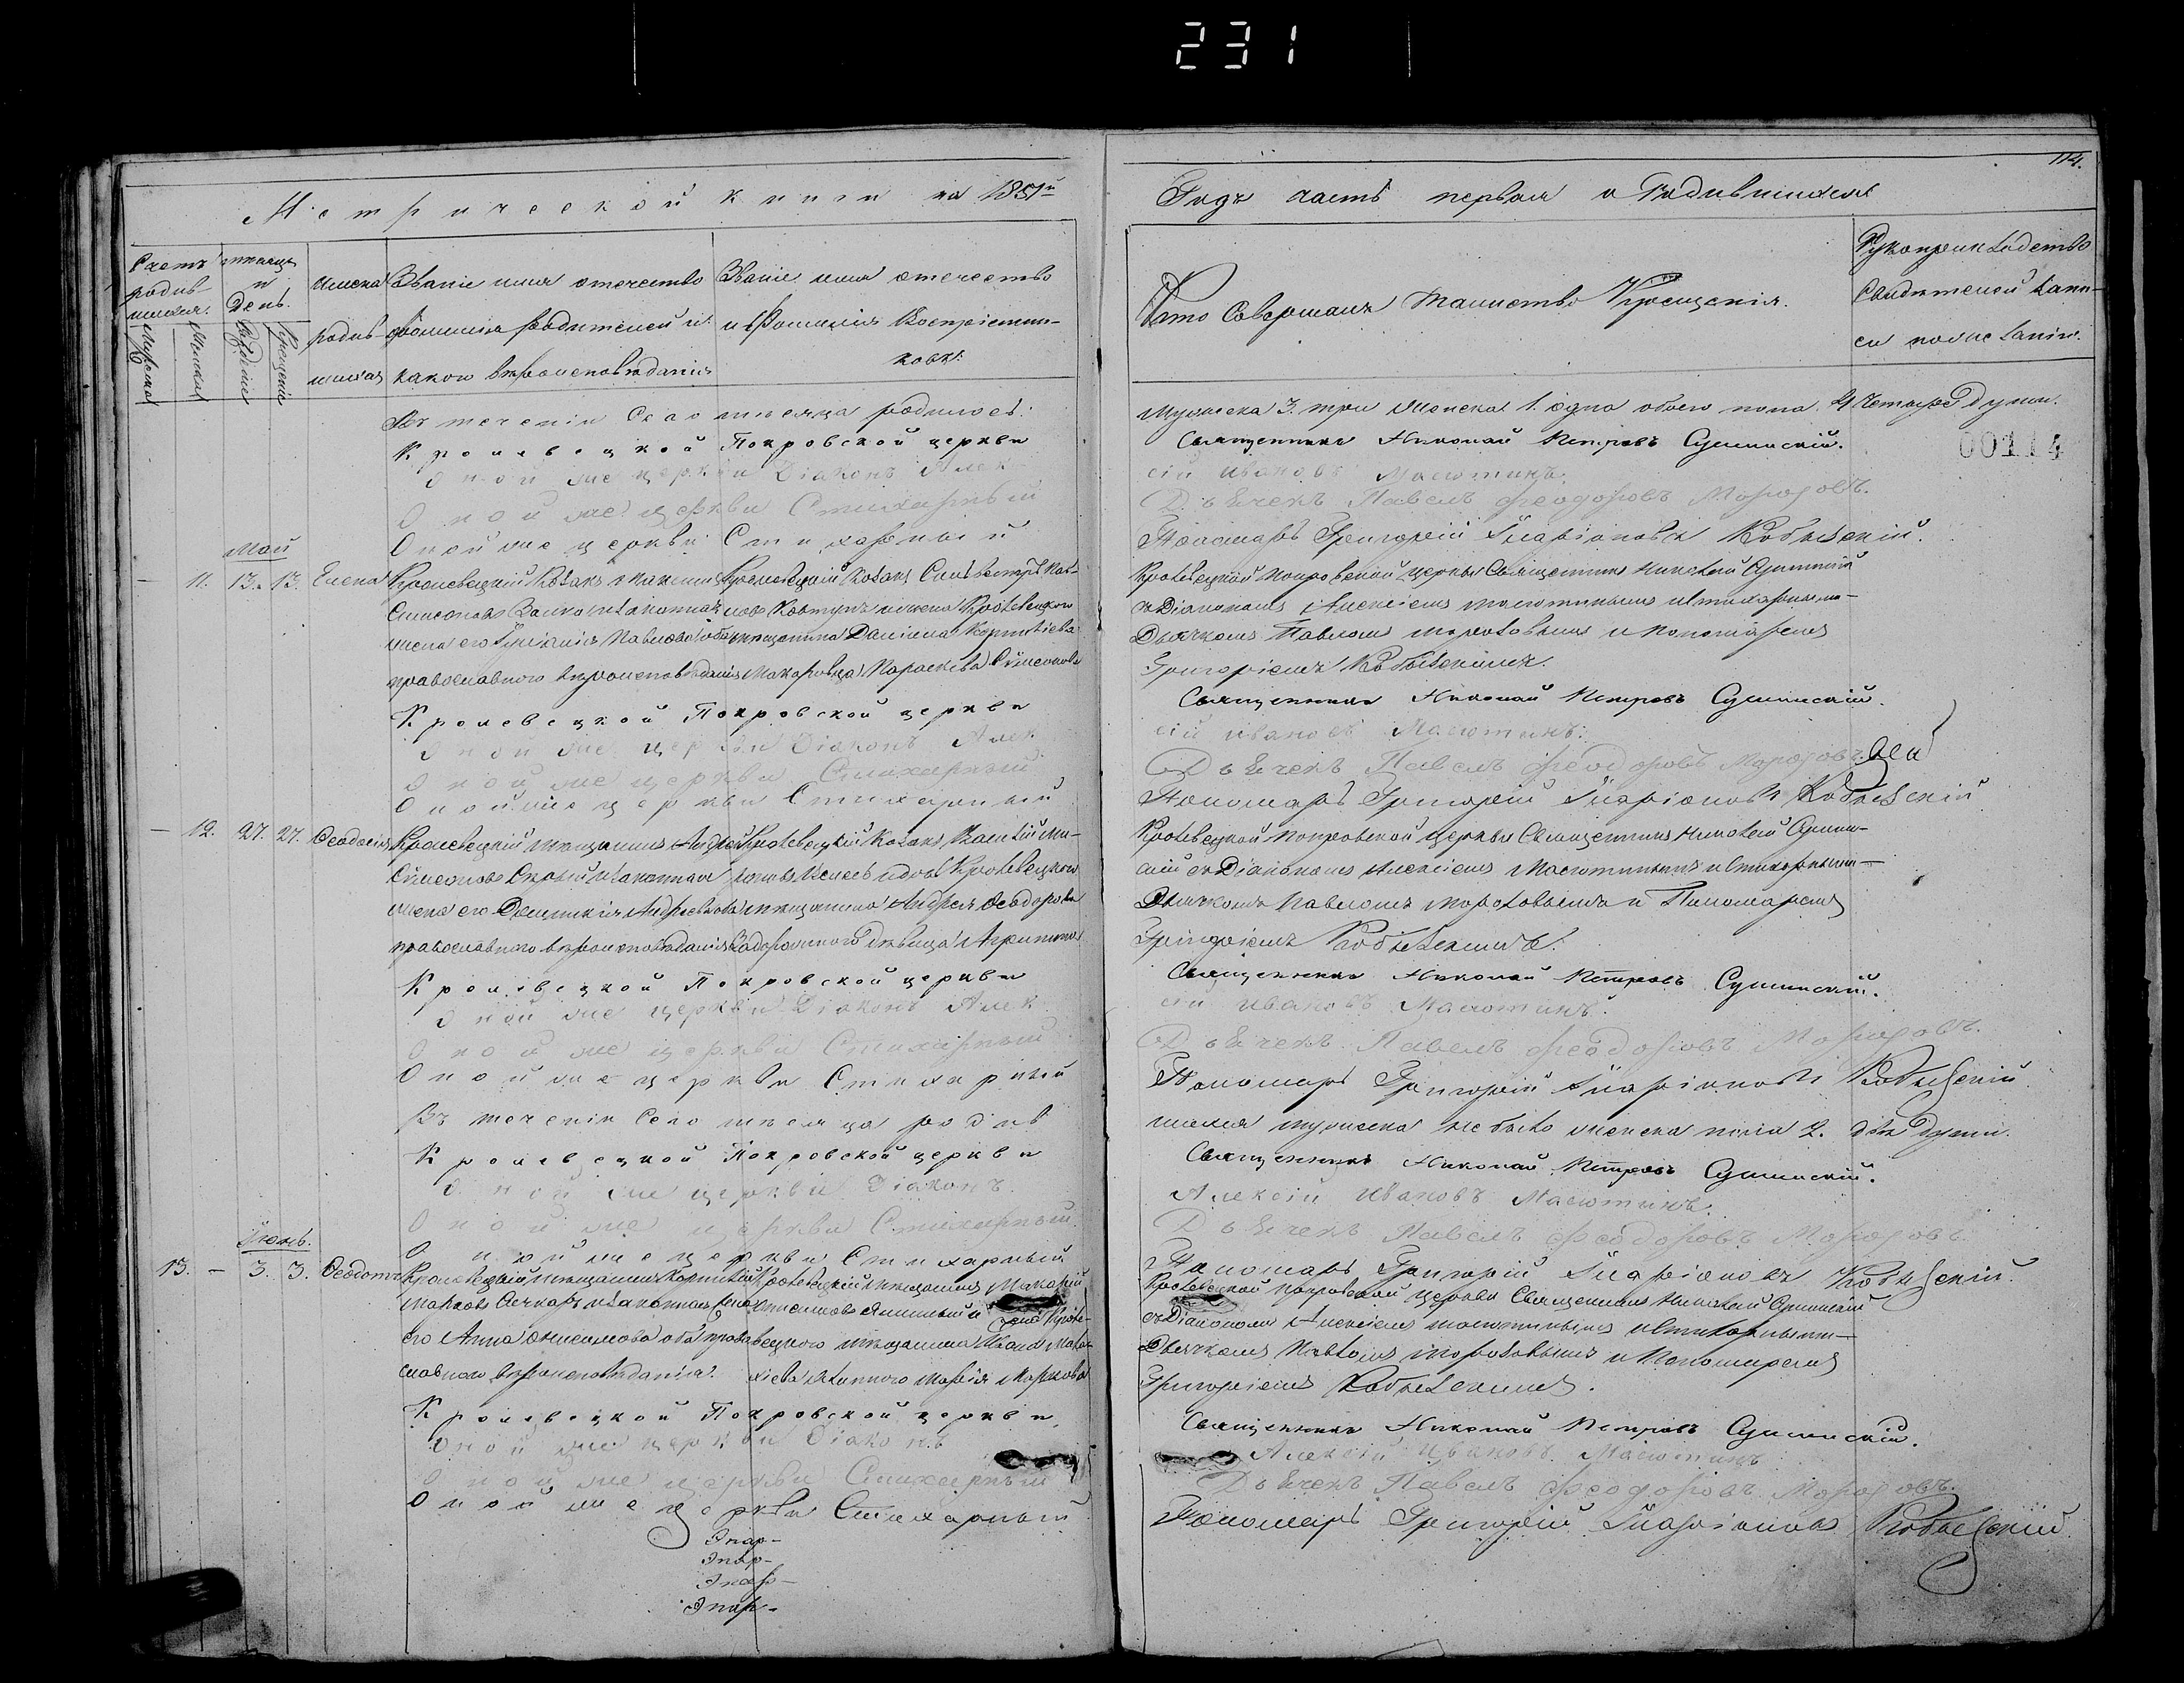 231
114.
Метрической книги на 1851й
Годъ часть первая о Родившихся
Счетъ родив-шихся.
Мѣсяцъ и День.
Имена родив-шихся
Званіе имя отечество
фамилія Родителей и
какого вѣроисповѣданія
Званіе имя отечество
и Фамилія Воспріемни-
ковъ.
Кто Совершалъ Таинство Крещенія.
Рукоприкладство
Свидѣтелей запи-
си по желанію.
Мужеска
Женска
Рожденія
Крещенія
Въ теченіи Сего мѣсяца родилось:
Мужеска 3. три Женска 1. одна обоего пола 4 Четыре Души.
Кролевецкой Покровской церкви
Священникъ Николай Петровъ Сушинскій.
00114
Оной же церкви Діаконъ Алек
сій Ивановъ Масютинъ.
Оной же церкви Стихарный
Дьячекъ Павелъ Феодоровъ Морозовъ.
Оной же церкви Стихарный
Пономарь Григорій Иларіоновъ
Май
— 11. 13. 13. Елена
Кролевецкій Козакъ
Симеоновъ Заико и законная
жена его Павлова оба
православного вѣроисповѣданія
Кролевецкій Козакъ
Ковтунъ и жена Кролевецкого
мѣщанина Даніила
Макаровца Параскева Симеонова
Кролевецкой Покровской церкви Священникъ Николай Сушинскій
съ Діакономъ Алексіемъ Масютинымъ и Стихарными—
Дьячкомъ Павломъ Морозовымъ и Пономаремъ
Григоріемъ
Кролевецкой Покровской церкви
Священникъ Николай Петровъ Сушинскій.
Оной же церкви Діаконъ Алек
сій Ивановъ Масютинъ.
Оной же церкви Стихарный
Дьячекъ Павелъ Феодоровъ Морозовъ.
Оной же церкви Стихарный
Пономарь Григорій Иларіоновъ
— 12. 27. 27. Феодосія
Кролевецкій мѣщанинъ
Симеоновъ и законная
жена его Домникія Андреевна
православного вѣроисповѣданія
Кролевецкій Козакъ
Кролевецкого
мѣщанина Андрея Феодорова
дѣвица Агрипина
Кролевецкой Покровской церкви Священникъ Николай Сушин-
скій съ Діакономъ Алексіемъ Масютинымъ и Стихарными—
Дьячкомъ Павломъ Морозовымъ и Пономаремъ
Григоріемъ
Кролевецкой Покровской церкви
Священникъ Николай Петровъ Сушинскій.
Оной же церкви Діаконъ Алек
сій Ивановъ Масютинъ.
Оной же церкви Стихарный
Дьячекъ Павелъ Феодоровъ Морозовъ.
Оной же церкви Стихарный
Пономарь Григорій Иларіоновъ
Въ теченіи Сего мѣсяца родив
шихся мужеска не было женска пола 2. двѣ Души.
Кролевецкой Покровской церкви
Священникъ Николай Петровъ Сушинскій.
Оной же церкви Діаконъ
Алексій Ивановъ Масютинъ.
Оной же церкви Стихарный
Дьячекъ Павелъ Феодоровъ Морозовъ.
Оной же церкви Стихарный
Пономарь Григорій Иларіоновъ
Іюнь.
13. — 3. 3. Феодотъ
Кролевецкій мѣщанинъ Корнилій
Марковъ и законная жена
его Анна Онисимова оба право
славного вѣроисповѣданія.
Кролевецкій мѣщанинъ Макарій
и Кроле-
вецкого мѣщанина
Марія Маркова
Кролевецкой Покровской церкви Священникъ Николай Сушинскій
съ Діакономъ Алексіемъ Масютинымъ и Стихарными—
Дьячкомъ Павломъ Морозовымъ и Пономаремъ
Григоріемъ
Кролевецкой Покровской церкви
Священникъ Николай Петровъ Сушинскій.
Оной же церкви Діаконъ
Алексій Ивановъ Масютинъ
Оной же церкви Стихарный
Дьячекъ Павелъ Феодоровъ Морозовъ.
Оной же церкви Стихарный
Пономарь Григорій Иларіоновъ
Эпар-
Эпар-
Эпар-
Эпар-